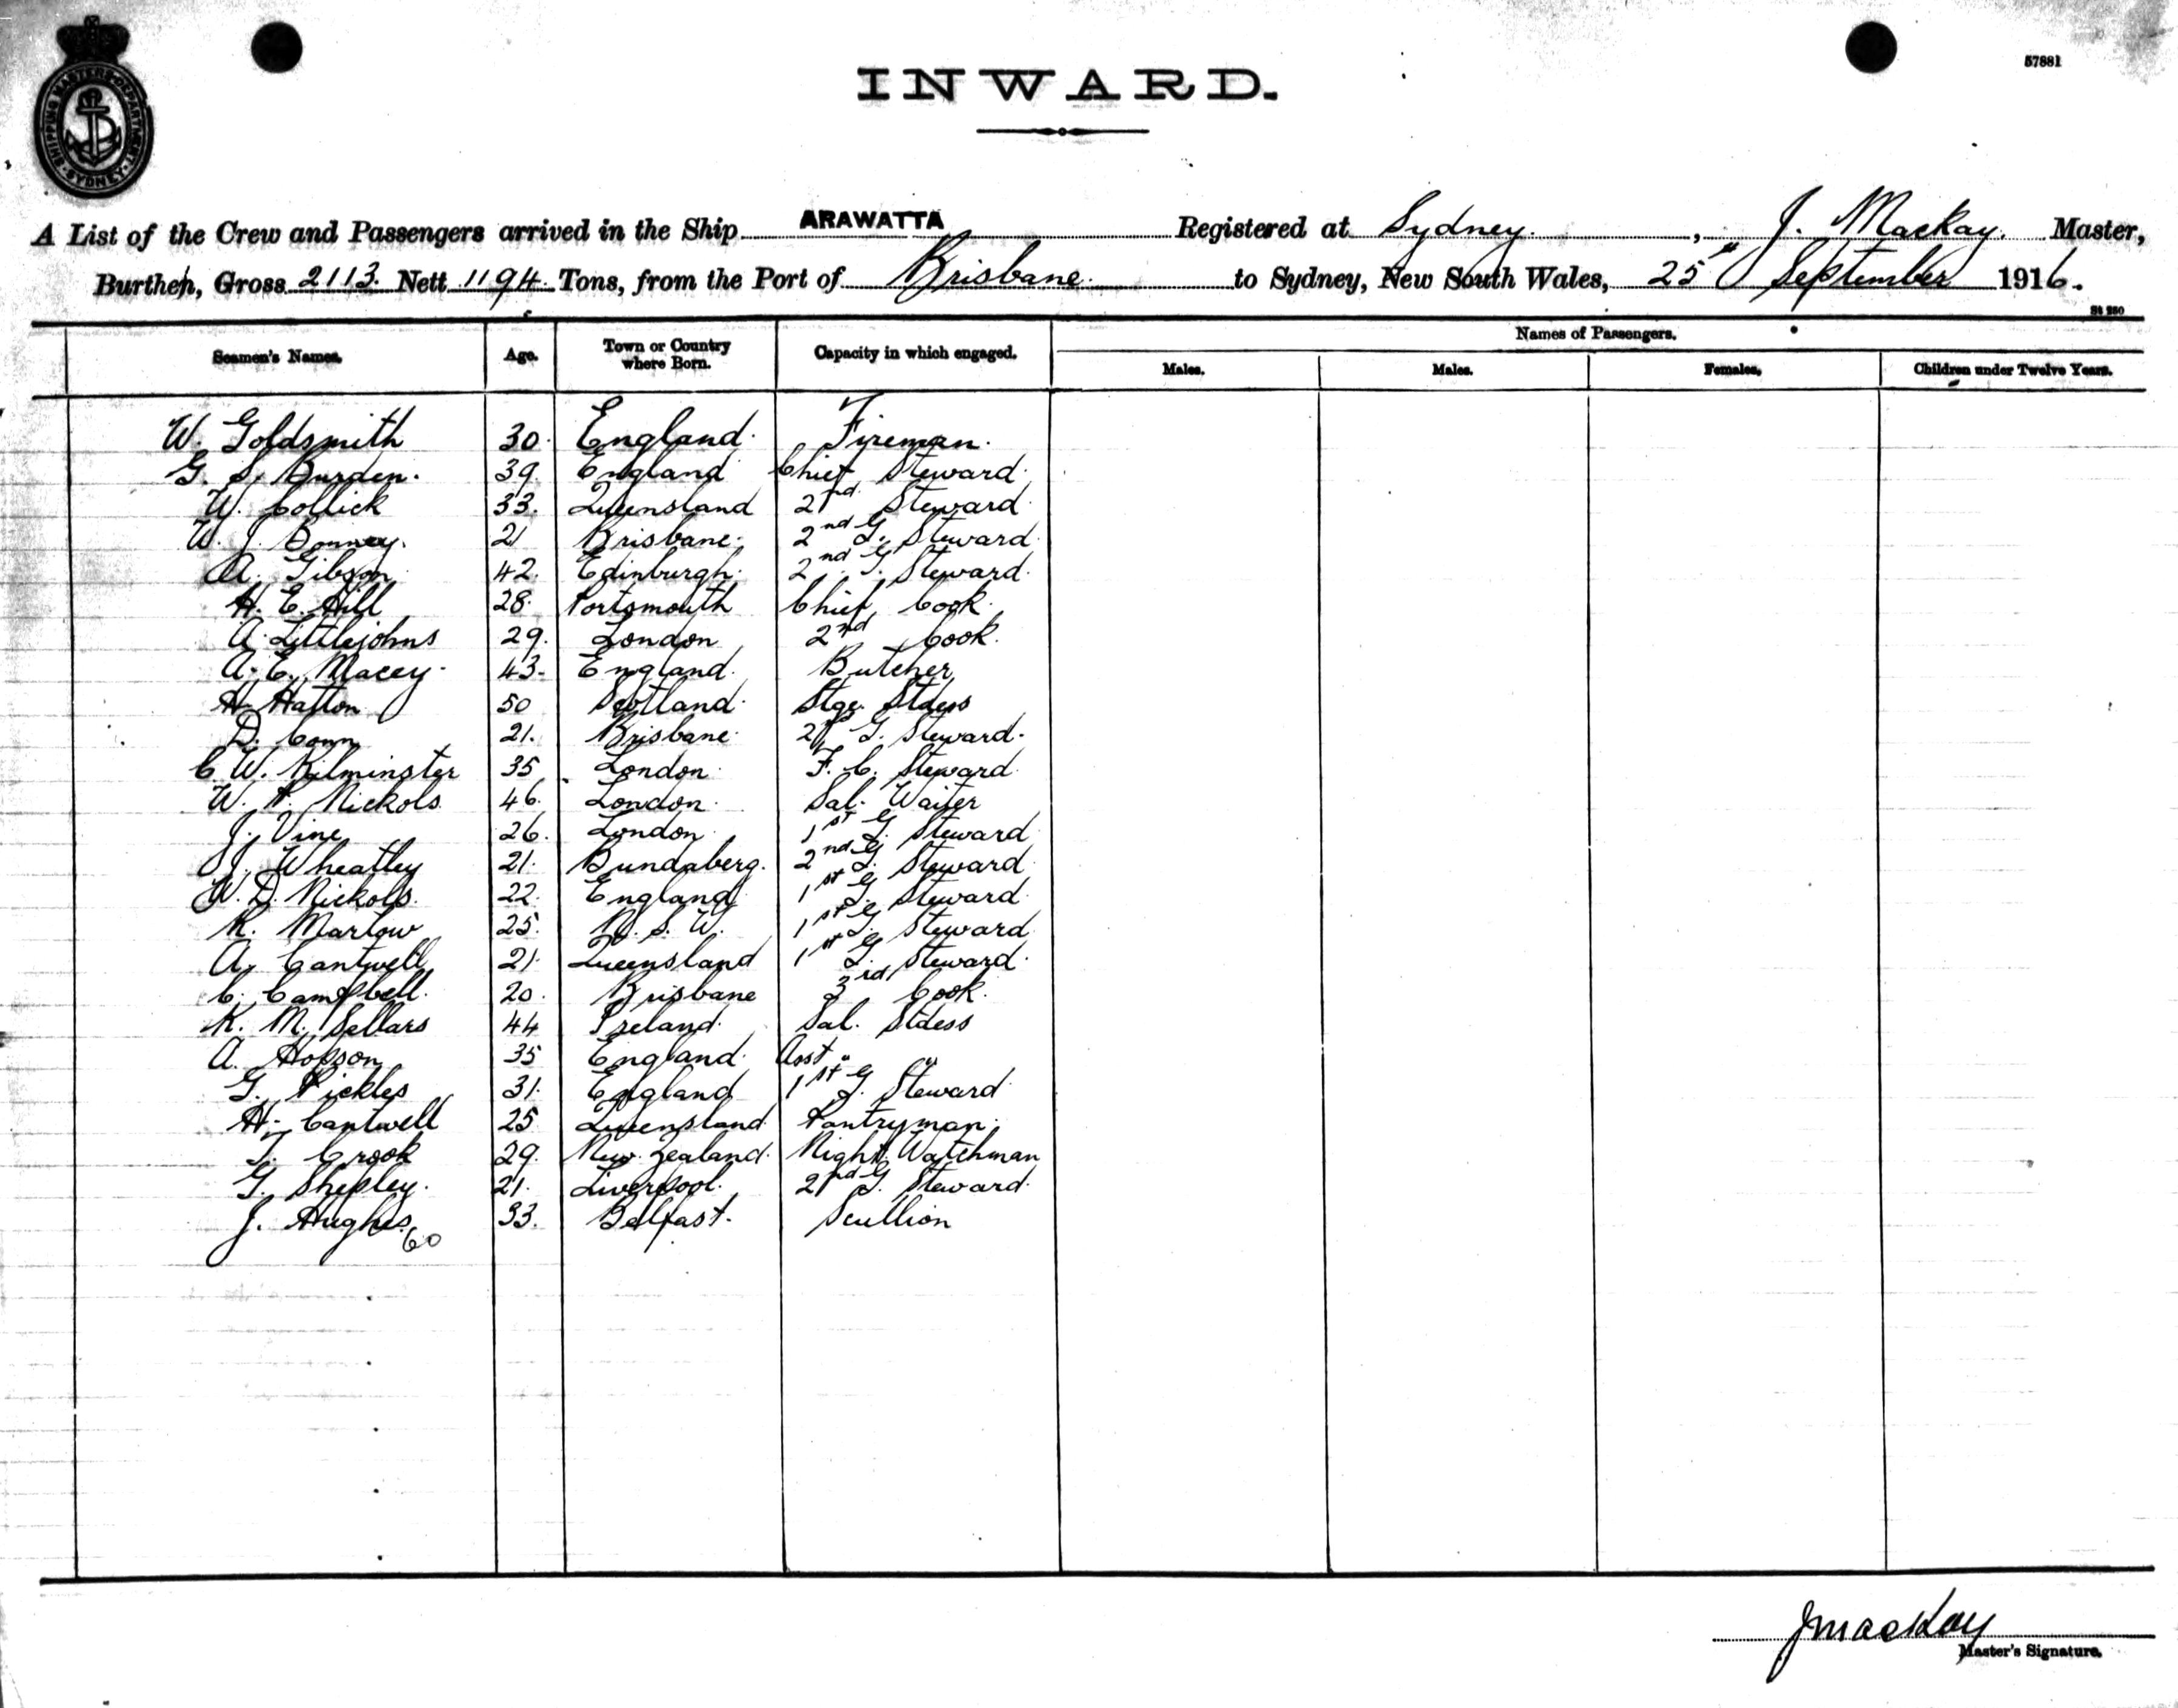 SHIPPING MASTERS DEPARTMENT SYDNEY
57881
INWARD.
A List of the Crew and Passengers arrived in the Ship ARAWATTA Registered at Sydney. , J. Mackay. Master,
Burthen, Gross 2113. Nett 1194. Tons, from the Port of Brisbane. to Sydney, New South Wales, 25" September 1916.
St 250
Seamen's Names. Age. Town or Country where Born. Capacity in which engaged. Names of Passengers.
Males. Males. Females. Children under Twelve Years.
W. Goldsmith 30. England. Fireman.
G. S. Burden. 39. England Chief Steward.
W. Collick 33. Queensland 2nd Steward
W. J. 21 Brisbane. 2nd G. Steward
A. Gibson 42. Edinburgh. 2nd G. Steward.
H. E. Hill 28. Portsmouth Chief Cook.
A. Littlejohns 29. London 2nd Cook.
A. E. Macey. 43. England. Butcher
H. Hatton 50 Scotland. Stge. Stdess
D. Conn 21. Brisbane. 2nd G. Steward.
C. W. Kilminster 35 London. F. C. Steward
W. Nickols 46. London. Sal. Waiter
J. Vine 26. London 1st G. Steward
J. Wheatley 21. Bundaberg. 2nd G. Steward
W. D. Nickols. 22. England 1st G. Steward
R. Marlow 25. N. S. W. 1st G. Steward
A. Cantwell 21. Queensland 1st G. Steward.
C. Campbell. 20. Brisbane 3rd Cook.
K. M. Sellars 44 Ireland. Sal. Stdess
A. Hobson 35 England. Asst. " "
G. Pickles 31. England 1st G. Steward.
H. Cantwell 25 Queensland Pantryman.
T. Crook 29. New Zealand. Night Watchman
G. Shepley. 21. Liverpool. 2nd G. Steward.
J. Hughes. 33. Belfast. Scullion
60
JMacKay
Master's Signature.